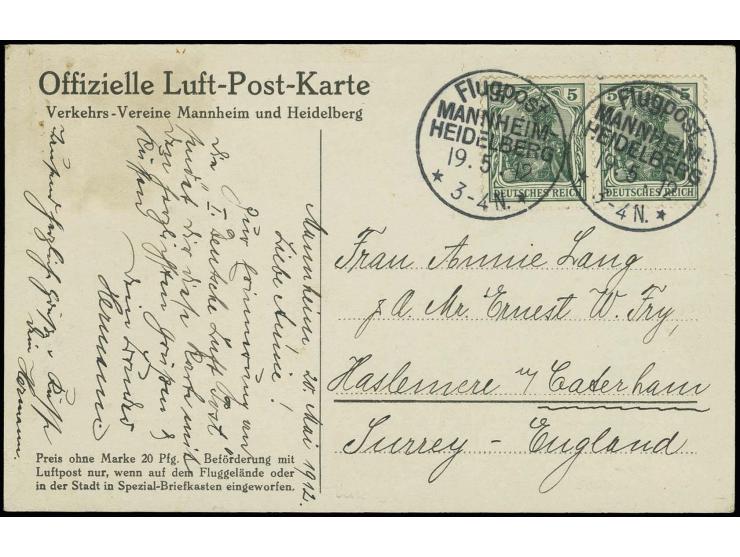 Offizielle Luft-Post-Karte
Verkehrs-Vereine Mannheim und Heidelberg
Mannheim 20. Mai 1912.
Liebe Annie!
Zur Erinnerung an
die I. Deutsche Luft Post
sendet dir diese Karte mit
den herzlichsten Grüßen &
Küssen
dein
Hermann
Tausend herzliche Grüße & Küsse
dein Hermann.
Preis ohne Marke 20 Pfg. Beförderung mit
Luftpost nur, wenn auf dem Fluggelände oder
in der Stadt in Spezial-Briefkasten eingeworfen.
Flugpost
MANNHEIM-
HEIDELBERG
19.5.12
3-4 N.
5
DEUTSCHES REICH
Flugpost
MANNHEIM-
HEIDELBERG
19.5.12
3-4 N.
5
DEUTSCHES REICH
Frau Annie Lang
z. A. Mr. Ernest W. Fry,
Haslemere n/ Caterham
Surrey - England